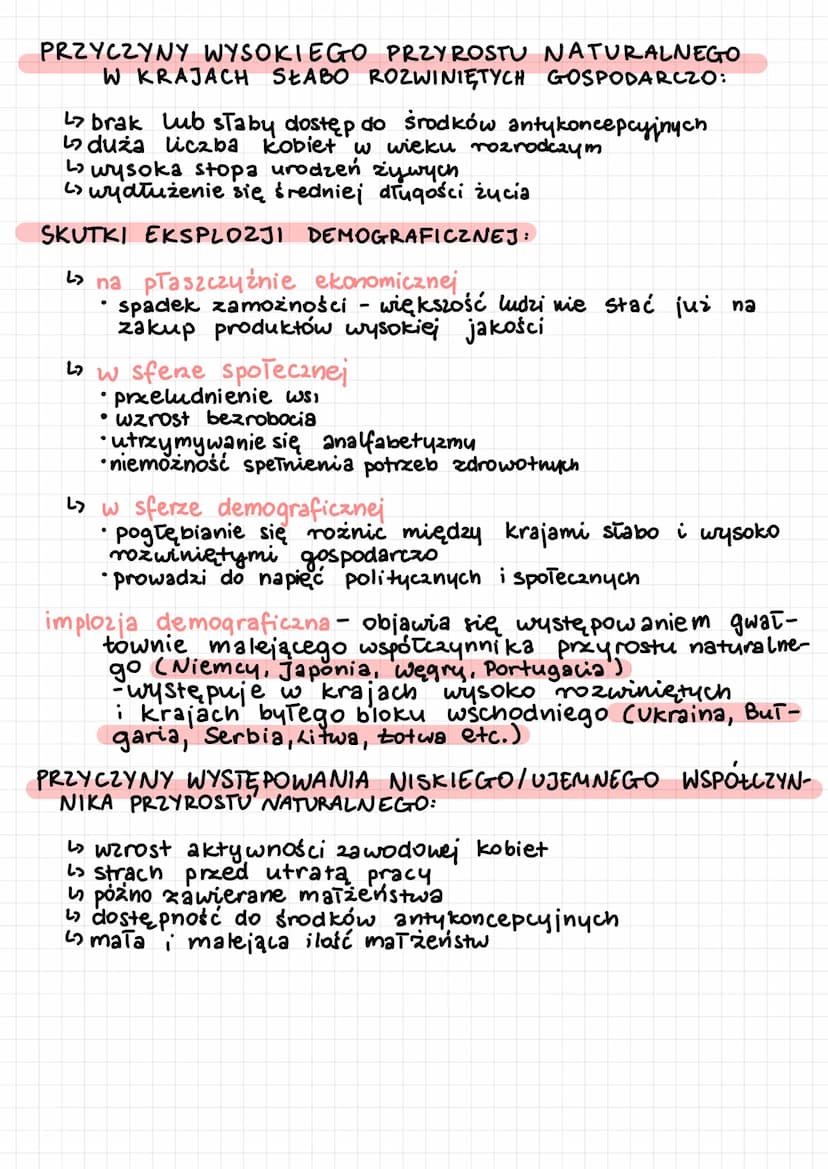 PRZYCZYNY WYSOKIEGO PRZYROSTU NATURALNEGO
W KRAJACH SŁABO ROZWINIĘTYCH GOSPODARCZO:
↳ brak lub słaby dostęp do środków antykoncepcyjnych
↳ duża liczba kobiet w wieku rozrodczym
↳ wysoka stopa urodzeń żywych
↳ wydłużenie się średniej długości życia
SKUTKI EKSPLOZJI DEMOGRAFICZNEJ:
↳ na płaszczyźnie ekonomicznej
• spadek zamożności - większość ludzi nie stać już na
zakup produktów wysokiej jakości
↳ w sferze społecznej
• przeludnienie wsi
• wzrost bezrobocia
• utrzymywanie się analfabetyzmu
• niemożność spełnienia potrzeb zdrowotnych
↳ w sferze demograficznej
• pogłębianie się różnic między krajami słabo i wysoko
rozwiniętymi gospodarczo
• prowadzi do napięć politycznych i społecznych
implozja demograficzna - objawia się występowaniem gwał-
townie malejącego współczynnika przyrostu naturalne-
go (Niemcy, Japonia, Węgry, Portugalia)
- występuje w krajach wysoko rozwiniętych
i krajach byłego bloku wschodniego (Ukraina, Buł-
garia, Serbia, Litwa, Łotwa etc.)
PRZYCZYNY WYSTĘPOWANIA NISKIEGO/UJEMNEGO WSPÓŁCZYN-
NIKA PRZYROSTU NATURALNEGO:
↳ wzrost aktywności zawodowej kobiet
↳ strach przed utratą pracy
↳ późno zawierane małżeństwa
↳ dostępność do środków antykoncepcyjnych
↳ mała i malejąca ilość małżeństw